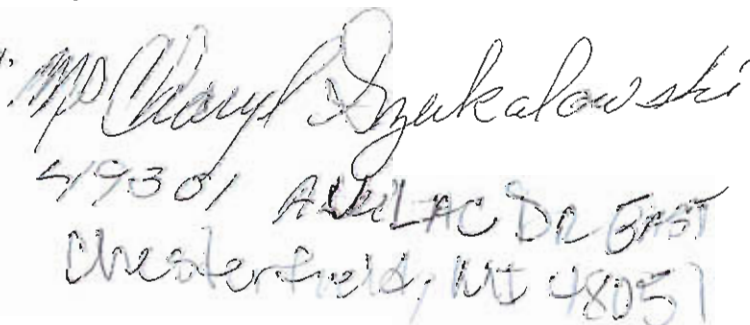 Cheryl Szukalowski
49301 DR EAST
Chesterfield, MI 48051